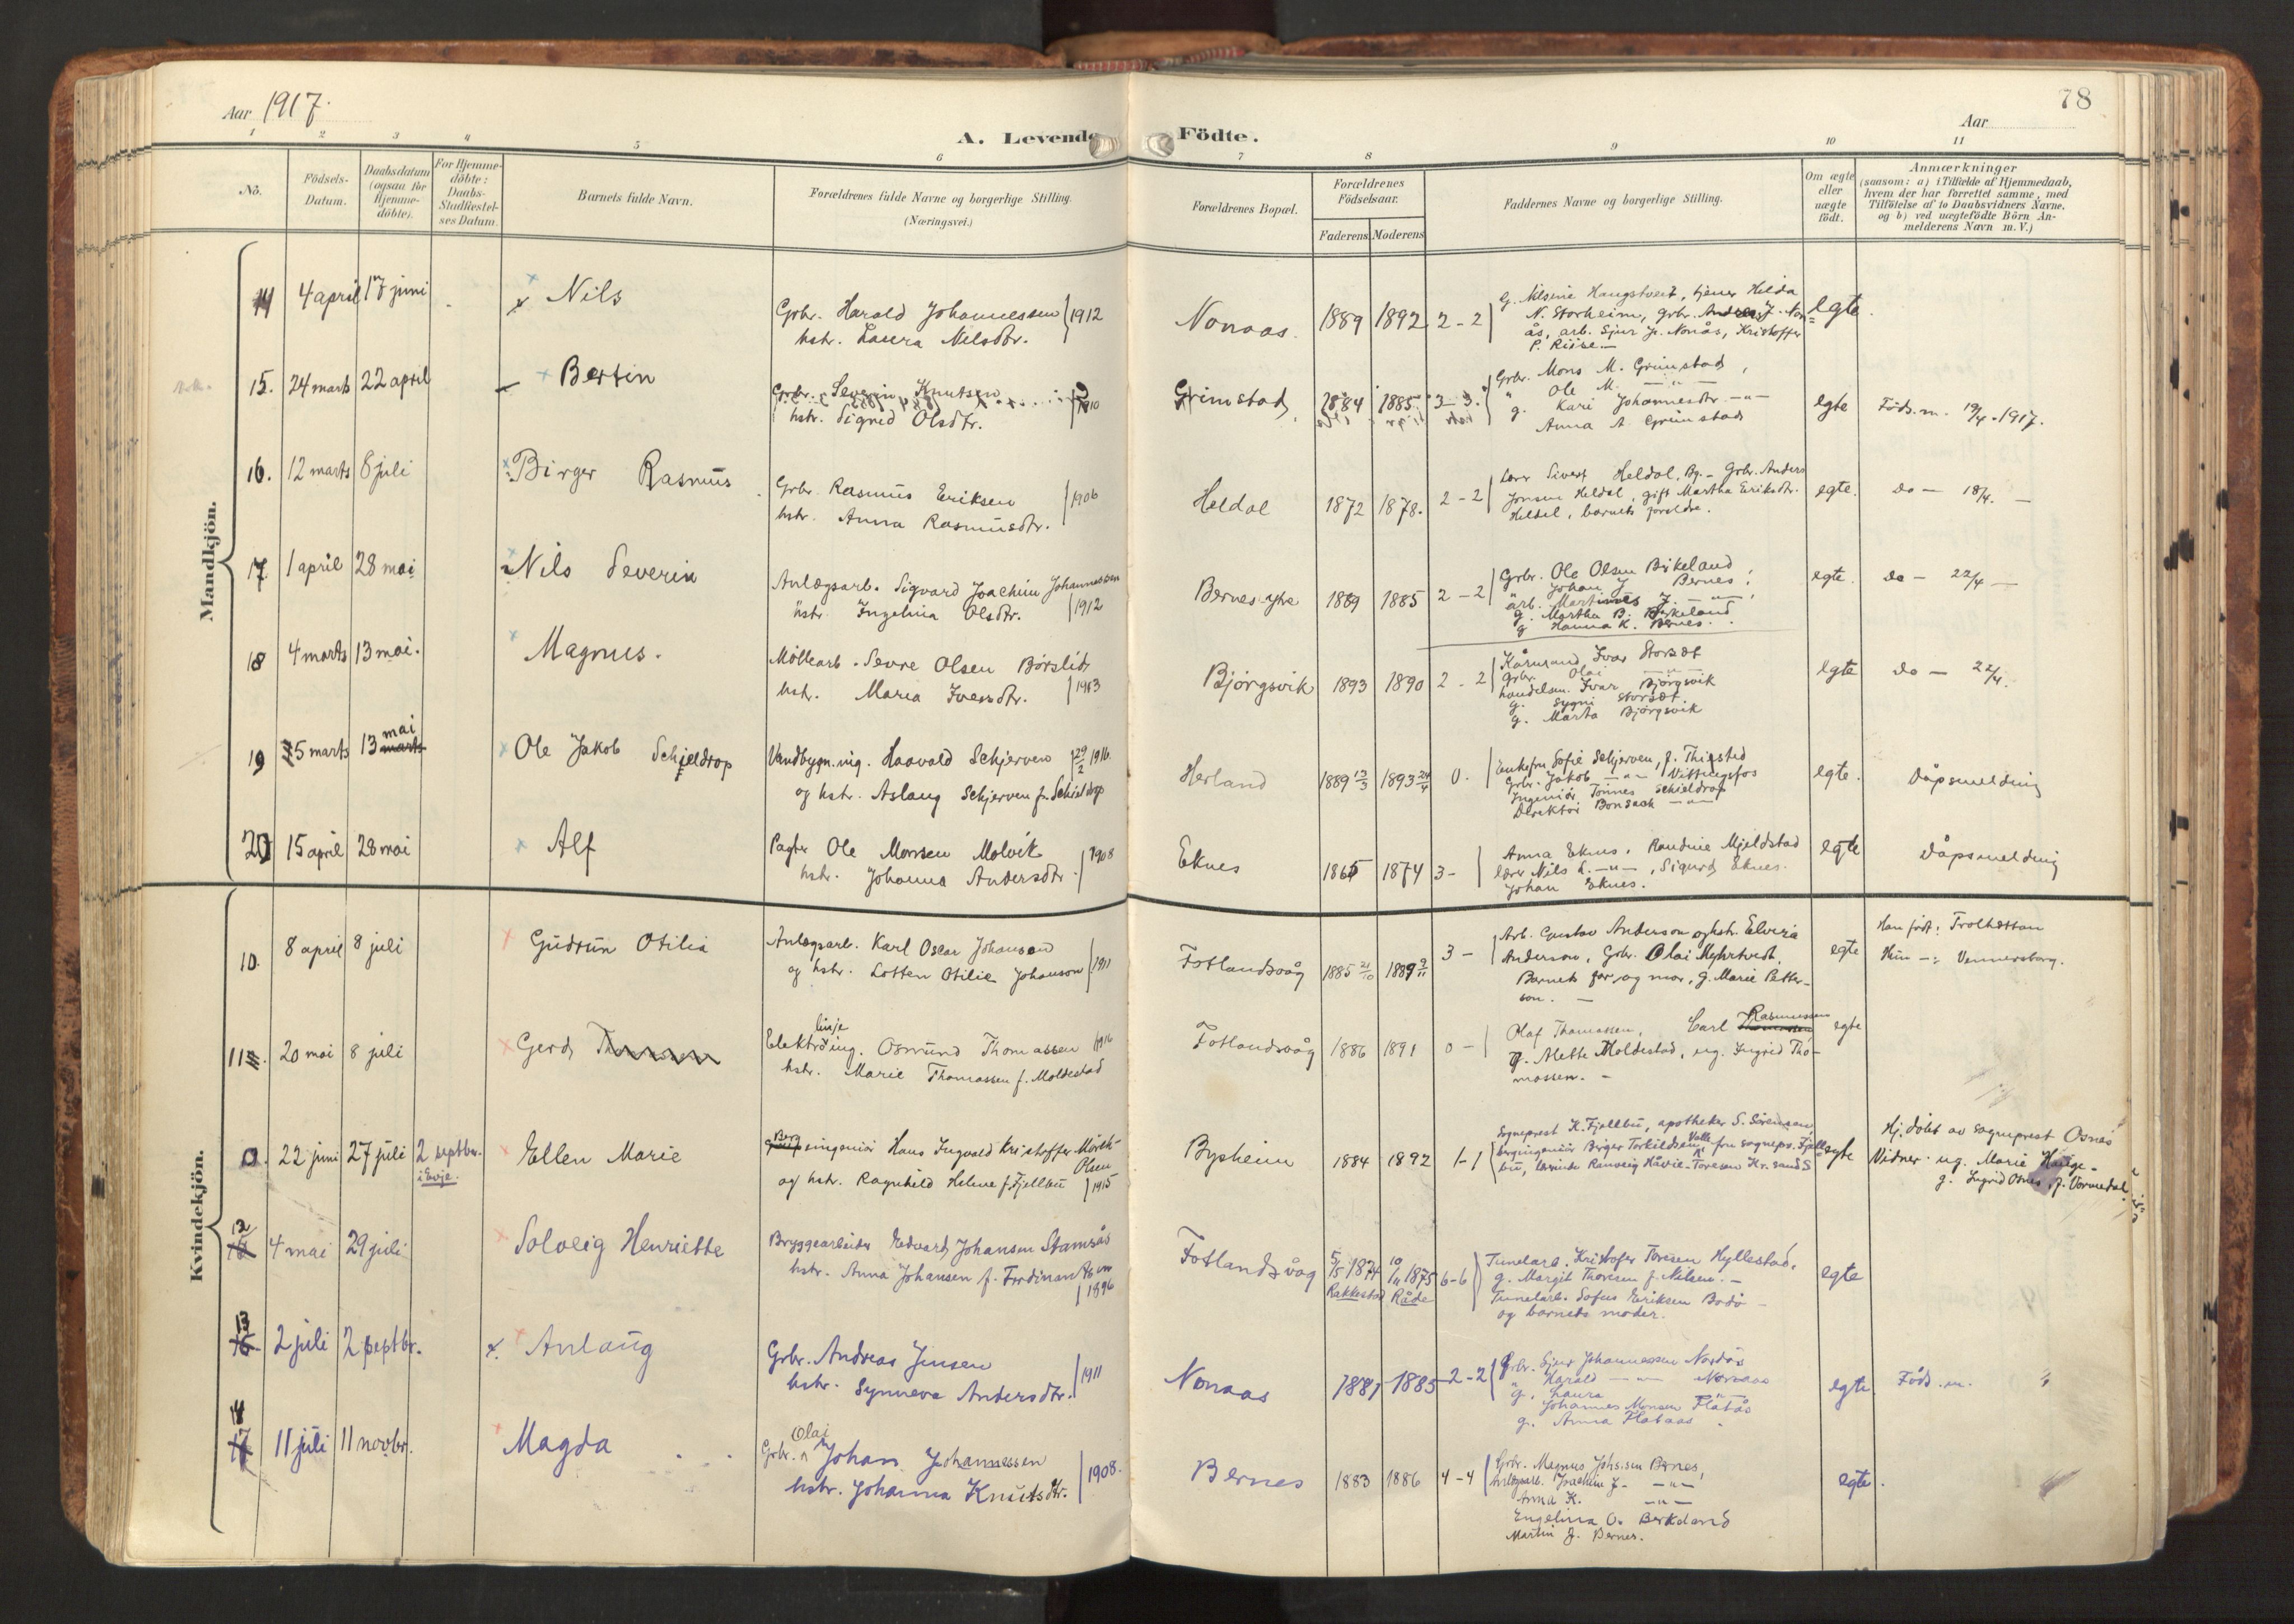 Aar 1917.
A. Levende Födte.
78
Aar
1 2 3 4 5 6 7 8 9 10 11
No.
Födsels-
Datum.
Daabsdatum
(ogsaa for
Hjemme-
döbte).
For Hjemme-
döbte:
Daabs-
Stadfæstel-
ses Datum.
Barnets fulde Navn.
Forældrenes fulde Navne og borgerlige Stilling.
(Næringsvei.)
Forældrenes Bopæl.
Forældrenes
Födselsaar.
Faderens. Moderens.
Faddernes Navne og borgerlige Stilling.
Om ægte
eller
uægte
födt.
Anmærkninger
(saasom: a) i Tilfælde af Hjemmedaab,
hvem der har forrettet samme, med
Tilföielse af to Daabsvidners Navne,
og b) ved uægtefödte Börn An-
melderens Navn m. V.)
Mandkjön.
14 4 april 17 juni Nils
Grbr. Harald Johannessen 1912
hstr. Laura Nilsdtr.
Nonaas. 1889 1892 2-2
G. Nilsine Haugstveit, tjener Hilda
N. Storheim, grbr. Andreas J. Non-
ås, arb. Sjur J. Nonås, Kristoffer
P. Riise.
egte
15. 24 marts 22 april Bertin
Grbr. Severin Knutsen 1910
hstr. Sigrid Olsdtr.
Grimstad, 1884 1885 3-3
Grbr. Mons M. Grimstad,
" Ole M. -"-
g. Kari Johannesdtr. -"-
Anna A. Grimstad
egte Föds.m. 19/4.1917.
16. 12 marts 8 juli Birger Rasmus
Grbr. Rasmus Eriksen 1906
hstr. Anna Rasmusdtr.
Heldal 1872 1878. 2-2
Lærer Sivert Heldal, Bg. - Grbr. Anders
Jonsen Heldal, gift Martha Eriksdtr.
Heldal, barnets foreldre.
egte. do - 18/4. -
17 1 april 28 mai Nils Severin
Anlægsarb. Sigvard Joachim Johannessen
hstr. Ingelina Olsdtr. 1912
Bernes ytre 1889 1885 2-2
Grbr. Ole Olsen Birkeland,
" Johan J. Bernes,
arb. Martinus J. -"-,
g. Martha B. Birkeland
g Hanna K. Bernes.
egte. do - 22/4 -
18 4 marts 13 mai. Magnus.
Möllearb. Sevre Olsen Börslid
hstr. Maria Iversdtr. 1913
Björgsvik 1893 1890 2-2
Kårmand Ivar Storset
Grbr. Olai -"-
handelsm. Ivar Björgsvik
g. Sygni Storset
g. Marta Björgsvik
egte do - 22/4.
19 5 marts 13 mai marts Ole Jakob Schjeldrop
Vandbygn.ing. Haavald Schjerven 29/2 1916.
og hstr. Aslaug Schjerven f. Schieldrop
Herland 1889 13/3 1893 24/4 0.
Enkefru Sofie Schjerven, f. Thisted
Grbr. Jakob -"- Vittingsfos
Ingeniör Tönnes Schieldrop
Direktör Bonsach -"-
egte. Dåpsmelding
20 15 april 28 mai Alf
Pagter Ole Monsen Molvik 1908
hstr. Johanna Andersdtr.
Eknes 1865 1874 3-
Anna Eknes. Randine Mjeldstad
lærer Nils L. -"-, Sigurd Eknes.
Johan Eknes.
egte Dåpsmelding
Kvindekjön.
10. 8 april 8 juli Gudrun Otilia
Anlægsarb. Karl Oscar Johanson
og hstr. Lotten Otilie Johanson 1911
Fotlandsvåg 1885 21/10 1889 9/11 3-
Arb. Gustav Anderson og hstr. Elvira
Anderson, Grbr. Olai Myhrtveit,
Barnets far og mor, g. Marie Petter-
son. -
egte Han född: Trolhættan
Hun -: Vennersborg.
11. 20 mai 8 juli Gerd
linje
Elektroing. Osmund Thomassen 1916
hstr. Marie Thomassen f. Moldestad
Fotlandsvåg 1886 1891 0-
Olaf Thomassen, Carl Rasmussen Thomassen
g. Mette Moldestad, ug. Ingrid Tho-
massen. -
egte
0. 22 juni 27 juli 2 septbr. i Evje. Ellen Marie
Bergingeniör Hans Ingvald Kristoffer Mörch-
Olsen
og hstr. Ragnhild Helene f. Fjellbu 1915
Bysheim 1884 1892 1-1
Sogneprest K. Fjellbu, apotheker S. Sörensen,
bergingeniör Birger Torkildsen Valle, fru sognepr. Fjell-
bu, lærerinde Ranveig Håvie-Toresen Kr.sand S
egte Hj. döbt av sogneprest Osnes
Vidner. ug. Marie Hauge-
g. Ingrid Osnes, f. Vormedal.
12 4 mai 29 juli Solveig Henriette
Bryggearbeider Edvard Johansen Stamsås
hstr. Anna Johansen f. Ferdinandsen
1896
Fotlandsvåg 5/5 1874 10/11 1875 6-6
Rakkestad Råde
Tunelarb. Kristofer Toresen Hyllestad,
g. Margit Thoresen f. Nilsen. -
Tunelarb. Sofus Eriksen Bodö -
og barnets moder.
egte
13 2 juli 2 septbr. Anlaug
Grbr. Andreas Jensen 1911
hstr. Synneva Andersdtr.
Nonaas 1881 1885 2-2
Grbr. Sjur Johannessen Nordås
" Harald -"- Nonaas
g. Laura -"-
Johannes Monsen Flatås
g. Anna Flataas.
egte Föds.m. "
14 11 juli 11 novbr. Magda
Olai
Grbr. Johan Johannessen
hstr. Johanna Knutsdtr. 1908.
Bernes 1883 1886 4-4
Grbr. Magnus Johs.sen Bernes,
Anlægsarb. Joachim J. -"-
Anna K. -"-
Engelina O. Berkeland
Martin J. Bernes.
egte.